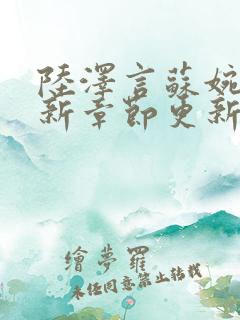 陸澤言蘇婉
新章節更新
繪夢羅
未经同意禁止转载